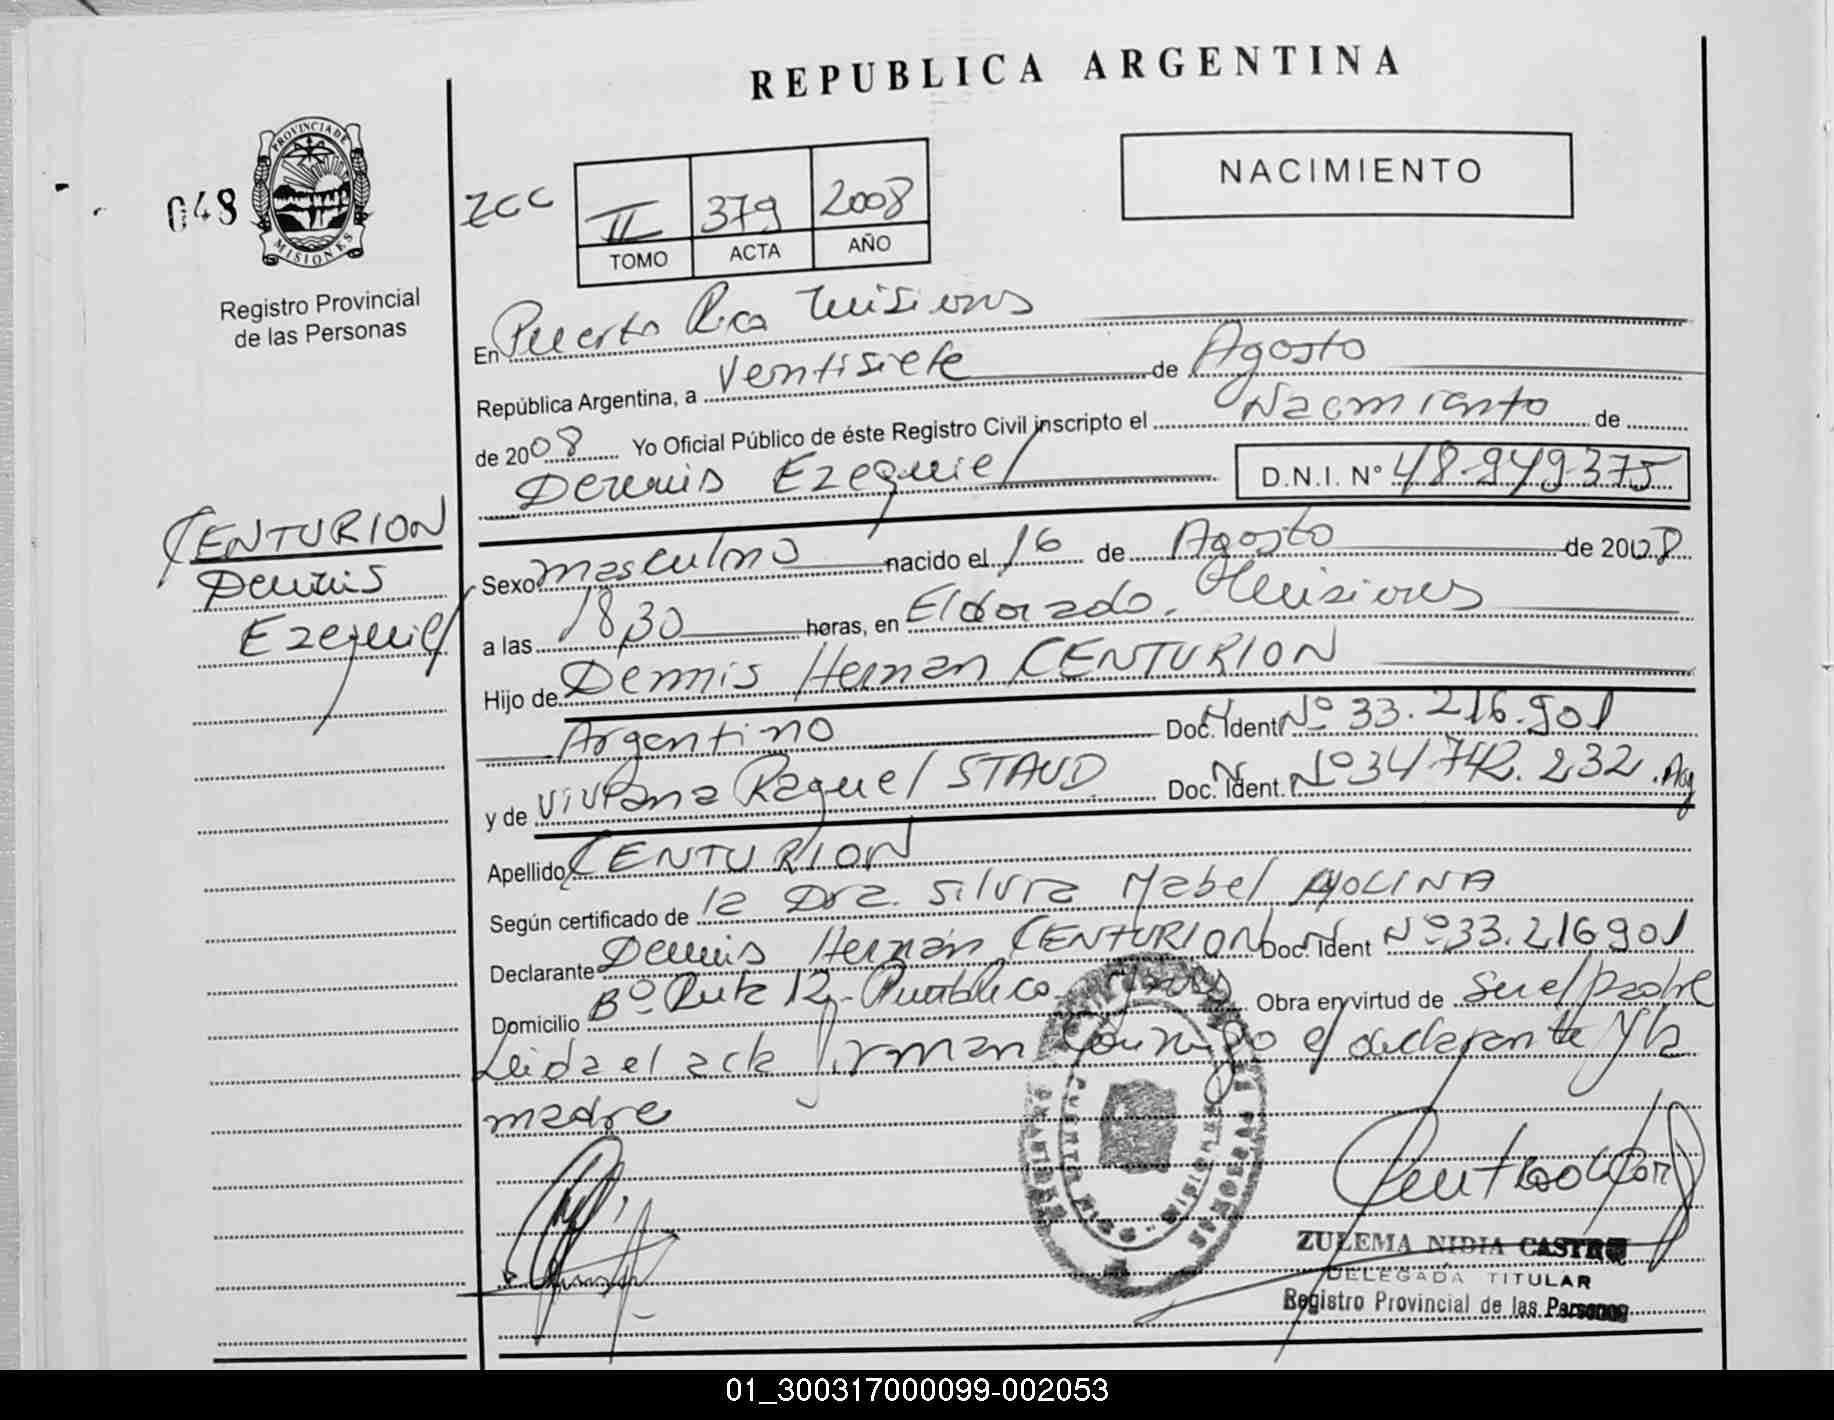 REPUBLICA ARGENTINA
NACIMIENTO
PROVINCIA DE
MISIONES
048
Registro Provincial
de las Personas
ZCC
II 379 2008
TOMO ACTA AÑO
En Puerto Rico Misiones
República Argentina, a Ventisiete de Agosto
de 2008 Yo Oficial Público de éste Registro Civil inscripto el Nacimiento de
Dennis Ezequiel D.N.I. N° 48.949.375
CENTURION
Dennis
Ezequiel
Sexo masculino nacido el 16 de Agosto de 2008
a las 18,30 horas, en Eldorado. Misiones
Hijo de Dennis Hernan CENTURION
Argentino Doc. Ident. N° 33.216.901
y de Viviana Raquel STAUD Doc. Ident. N° 34.742.232. Arg
Apellido CENTURION
Según certificado de la Dra. Silvia Mabel MOLINA
Declarante Dennis Hernán CENTURION Doc. Ident N° 33.216901
Domicilio B° Ruta 12- Obra en virtud de ser el padre
Leida el acta firman conmigo el declarante y la
madre
PUERTO RICO - MISIONES
ZULEMA NIDIA CASTRO
DELEGADA TITULAR
Registro Provincial de las Personas
01_300317000099-002053